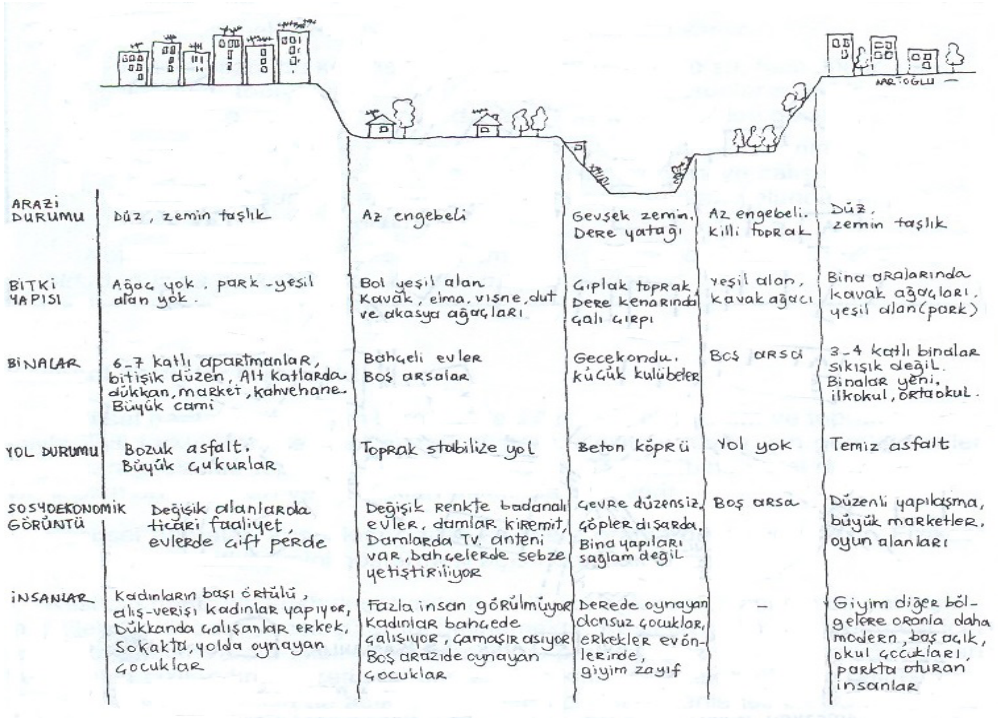 NARLIOĞLU
ARAZİ
DURUMU
Düz, zemin taşlık
Az engebeli
Gevşek zemin,
Dere yatağı
Az engebeli.
killi toprak
Düz,
zemin taşlık
BİTKİ
YAPISI
Ağaç yok. park-yeşil
alan yok.
Bol yeşil alan
Kavak, elma, vişne, dut
ve akasya ağaçları
Çıplak toprak,
Dere kenarında
çalı çırpı
Yeşil alan,
kavak ağacı
Bina aralarında
kavak ağaçları,
yeşil alan (park)
BİNALAR
6-7 katlı apartmanlar,
bitişik düzen, Alt katlarda
dükkan, market, kahvehane.
Büyük cami
Bahçeli evler
Boş arsalar
Gecekondu,
küçük kulübeler
Boş arsa
3-4 katlı binalar
sıkışık değil.
Binalar yeni,
ilkokul, ortaokul.
YOL DURUMU
Bozuk asfalt.
Büyük çukurlar
Toprak stabilize yol
Beton köprü
Yol yok
Temiz asfalt
SOSYOEKONOMİK
GÖRÜNTÜ
Değişik alanlarda
ticari faaliyet,
evlerde çift perde
Değişik renkte badanalı
evler, damlar kiremit,
Damlarda Tv. anteni
var, bahçelerde sebze
yetiştiriliyor
Çevre düzensiz,
çöpler dışarda,
Bina yapıları
sağlam değil
Boş arsa
Düzenli yapılaşma,
büyük marketler,
oyun alanları
İNSANLAR
Kadınların başı örtülü,
alış-verişi kadınlar yapıyor,
Dükkanda çalışanlar erkek,
Sokakta, yolda oynayan
çocuklar
Fazla insan görülmüyor
Kadınlar bahçede
çalışıyor, çamaşır asıyor
Boş arazide oynayan
çocuklar
Derede oynayan
donsuz çocuklar,
erkekler evön-
lerinde,
giyim zayıf
-
Giyim diğer böl-
gelere oranla daha
modern, baş açık,
okul çocukları,
parkta oturan
insanlar